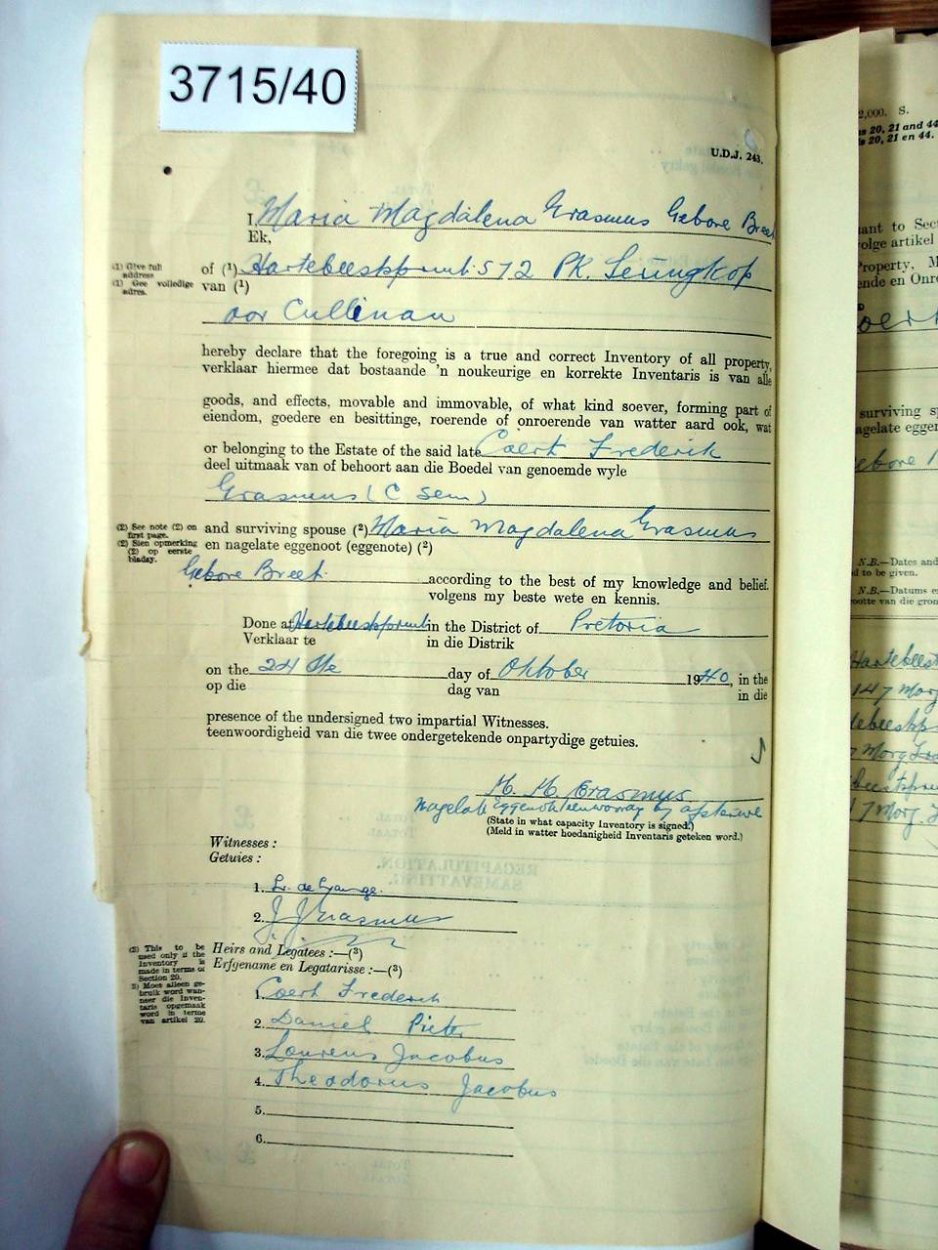 3715/40
U.D.J. 243.
I, Maria Magdalena Erasmus Gebore Breet
Ek,
(1) Give full address
(1) Gee volledige adres.
of (1) Hartebeestspruit 572 PK. Leeuwkop
van (1)
oor Cullinan
hereby declare that the foregoing is a true and correct Inventory of all property,
verklaar hiermee dat bostaande 'n noukeurige en korrekte Inventaris is van alle
goods, and effects, movable and immovable, of what kind soever, forming part of
eiendom, goedere en besittinge, roerende of onroerende van watter aard ook, wat
or belonging to the Estate of the said late Coert Frederik
deel uitmaak van of behoort aan die Boedel van genoemde wyle
Erasmus (C sem)
(2) See note (2) on first page.
(2) Sien opmerking (2) op eerste bladsy.
and surviving spouse (2) Maria Magdalena Erasmus
en nagelate eggenoot (eggenote) (2)
Gebore Breet according to the best of my knowledge and belief.
volgens my beste wete en kennis.
Done at Hartebeestspruit in the District of Pretoria
Verklaar te in die Distrik
on the 24 ste day of Oktober 1940, in the
op die dag van in die
presence of the undersigned two impartial Witnesses.
teenwoordigheid van die twee ondergetekende onpartydige getuies.
M. M. Erasmus
Nagelate Eggenote teenwoordig by afsterwe
(State in what capacity Inventory is signed.)
(Meld in watter hoedanigheid Inventaris geteken word.)
Witnesses :
Getuies :
1.
2. J J Erasmus
(3) This to be used only if the Inventory is made in terms of Section 20.
3) Moet alleen gebruik word wanneer die Inventaris opgemaak word in terme van artikel 20.
Heirs and Legatees :—(3)
Erfgename en Legatarisse :—(3)
1. Coert Frederik
2. Daniel Pieter
3. Lourens Jacobus
4. Theodorus Jacobus
5.
6.
2,000. S.
20, 21 and 44
20, 21 en 44.